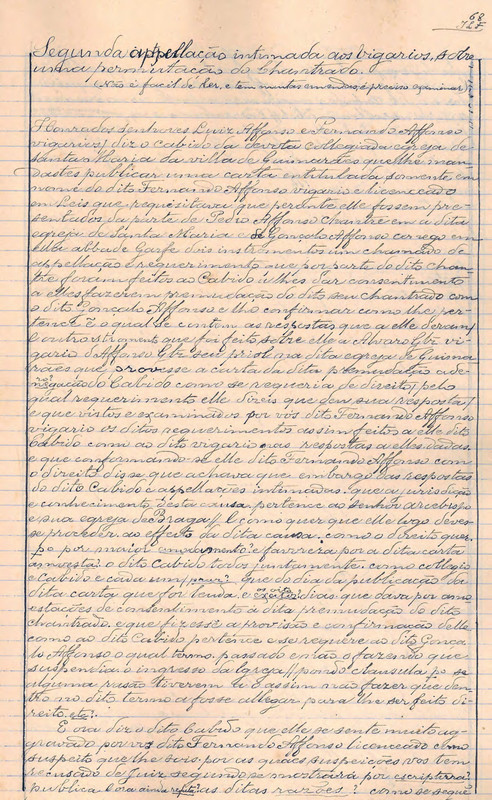 68
Segunda appellação intimada aos vigarios, sobre
uma permutação do Chantrado.
(Não é facil de ler, e tem muitas emendas, é preciso examinar)
Honrados senhores Luiz Affonso e Fernando Affonso
vigarios, diz o Cabido da devota Collegiada egreja de
Santa Maria da villa de Guimarães que lhe man-
dastes publicar uma carta entitulada somente em
nome do dito Fernando Affonso vigario e licenceado
em Leis que requisitava que perdante elle fossem pre-
sentados da parte de Pedro Affonso Chantre em a dita
egreja de Santa Maria e Gonçalo Affonso conego em
ella abbade Garfe dois instrumentos um chamado de
appellação e requerimento que por parte do dito chan-
tre foram feitos ao Cabido lhes dar consentimento
a elles fazerem premudação do dito seu chantrado com
o dito Gonçalo Affonso e lho confirmar como lhe per-
tence e o qual se contem as respostas que a elle deram
e outro stromento que foi feito sobre elle a Alvaro Glz vi-
gario d'Affonso Glz seu priol na dita egreja de Guima
rães que provesse a carta da dita premudação e de-
negação do Cabido como se requeria de direito, pelo
qual requerimento elle diz que deu sua resposta
e que vistos e examinados por vós dito Fernando Affonso
vigario os ditos requerimentos assim feitos a elle dito
Cabido como ao dito vigario nas respostas a elles dadas
e que conformando-se elle dito Fernando Affonso com
o direito disse que achava que embargo das respostas
do dito Cabido e appellações intimadas que a jurisdição
e conhecimento desta causa pertence ao senhor arcebispo
e sua egreja de Braga // E como quer que elle logo deves-
se proceder ao effeito da dita causa como o direito quer
po por maior avondamento e favoreza por a dita carta
amoesta o dito Cabido todos juntamente como collegio
e Cabido e cada um que do dia da publicação da
dita carta que foi lenda e os oito dias que dava por amo
estações de consentimento á dita premudação do dito
chantrado e que fizesse a provisão e confirmação delle
como ao dito Cabido pertence e se requere ao dito Gonça
lo Affonso o qual termo passado e não o fazendo que
suspendia o ingresso da egreja // pondo clausula que se
alguma rasão tiverem a o assim não fazer que den-
tro no dito termo a fosse allegar para lhe ser feito di-
reito etc.
E ora diz o dito Cabido que elle se sente muito ag-
gravado por vós dito Fernando Affonso licenceado como
suspeito que lhe sois por as quaes suspeições vos tem
recusado de juiz segundo se mostrará por escriptura
publica e ora ainda as ditas razões como se segue